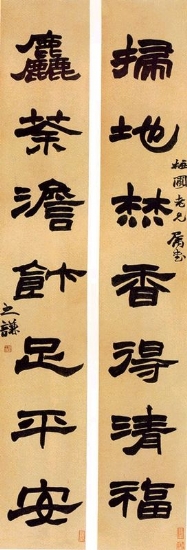 掃地焚香得清福
梅圃老兄屬書
麤茶澹飰足平安
之謙